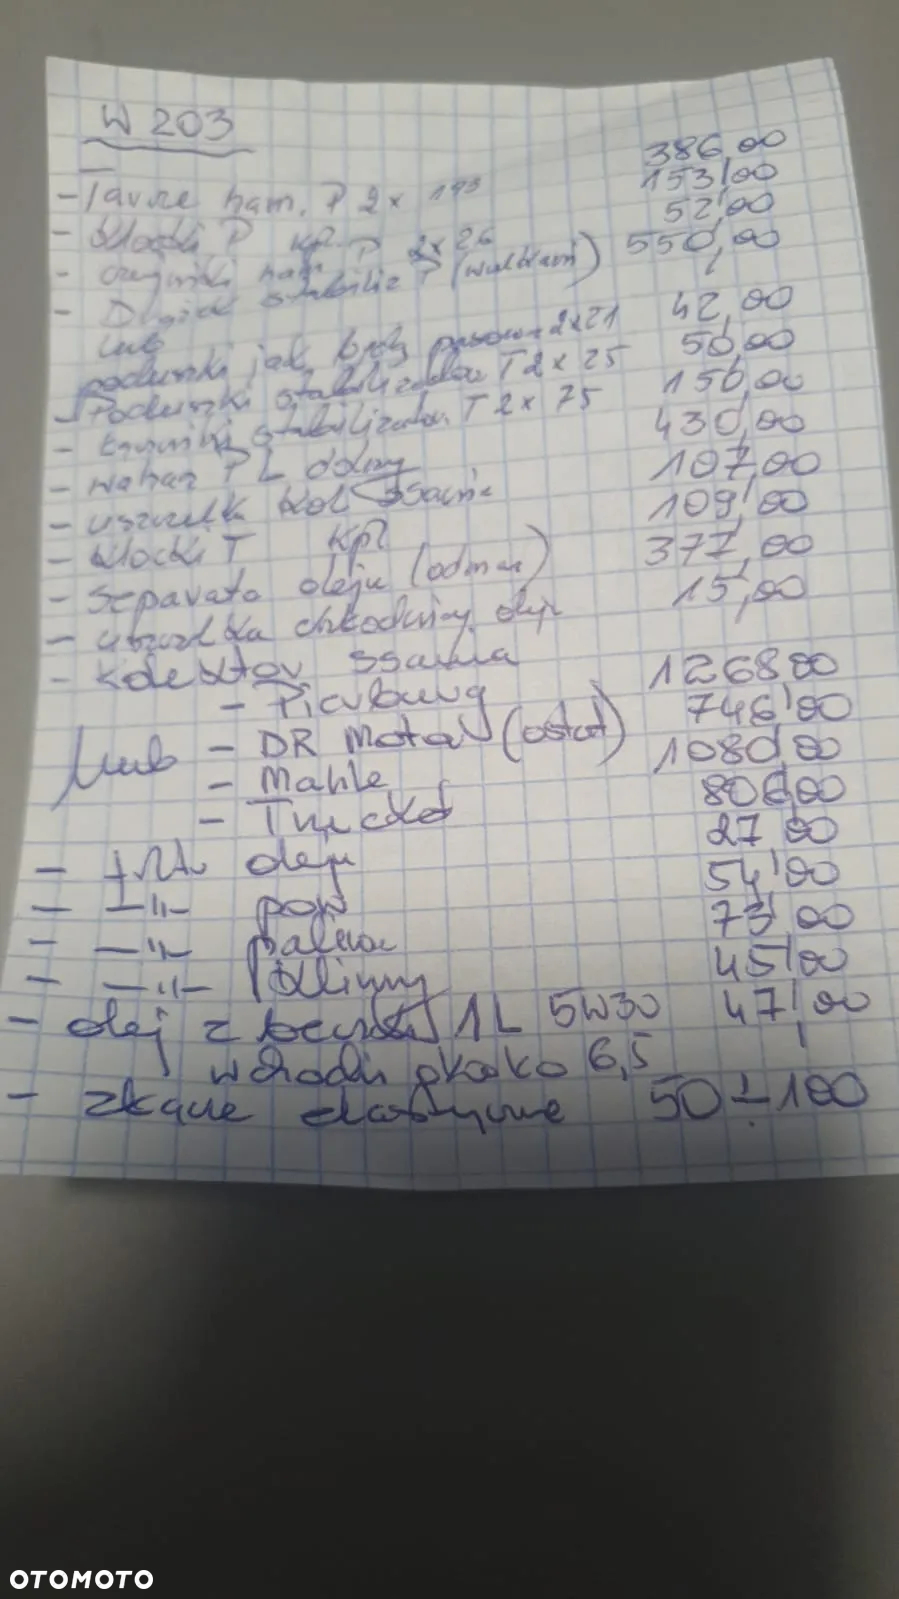 W 203
- Tarcze ham. P 2x 193 386,00
- klocki P kpl. 153,00
- czujniki ham P 2x26 52,00
- Drążek stabiliz P (wulkani) 550,00
lub
poduszki jak były 2x21 42,00
- Poduszki stabilizatora T 2x25 50,00
- stabilizatora T 2x 75 150,00
- wahacz P L dolny 430,00
- uszczelka kol ssania 107,00
- klocki T kpl 109,00
- separator oleju (odma) 377,00
- uszczelka chłodnicy oleju 15,00
- kolektor ssania
- Pierburg 126800
lub - DR Motor (ostat) 746,00
- Mahle 1080,00
- 806,00
- filtr oleju 27,00
- -"- pow 54,00
- -"- paliwa 73,00
- -"- kabinowy 45,00
- olej z beczki 1L 5W30 47,00
wchodzi około 6,5
- złącze elastyczne 50 - 100
OTOMOTO